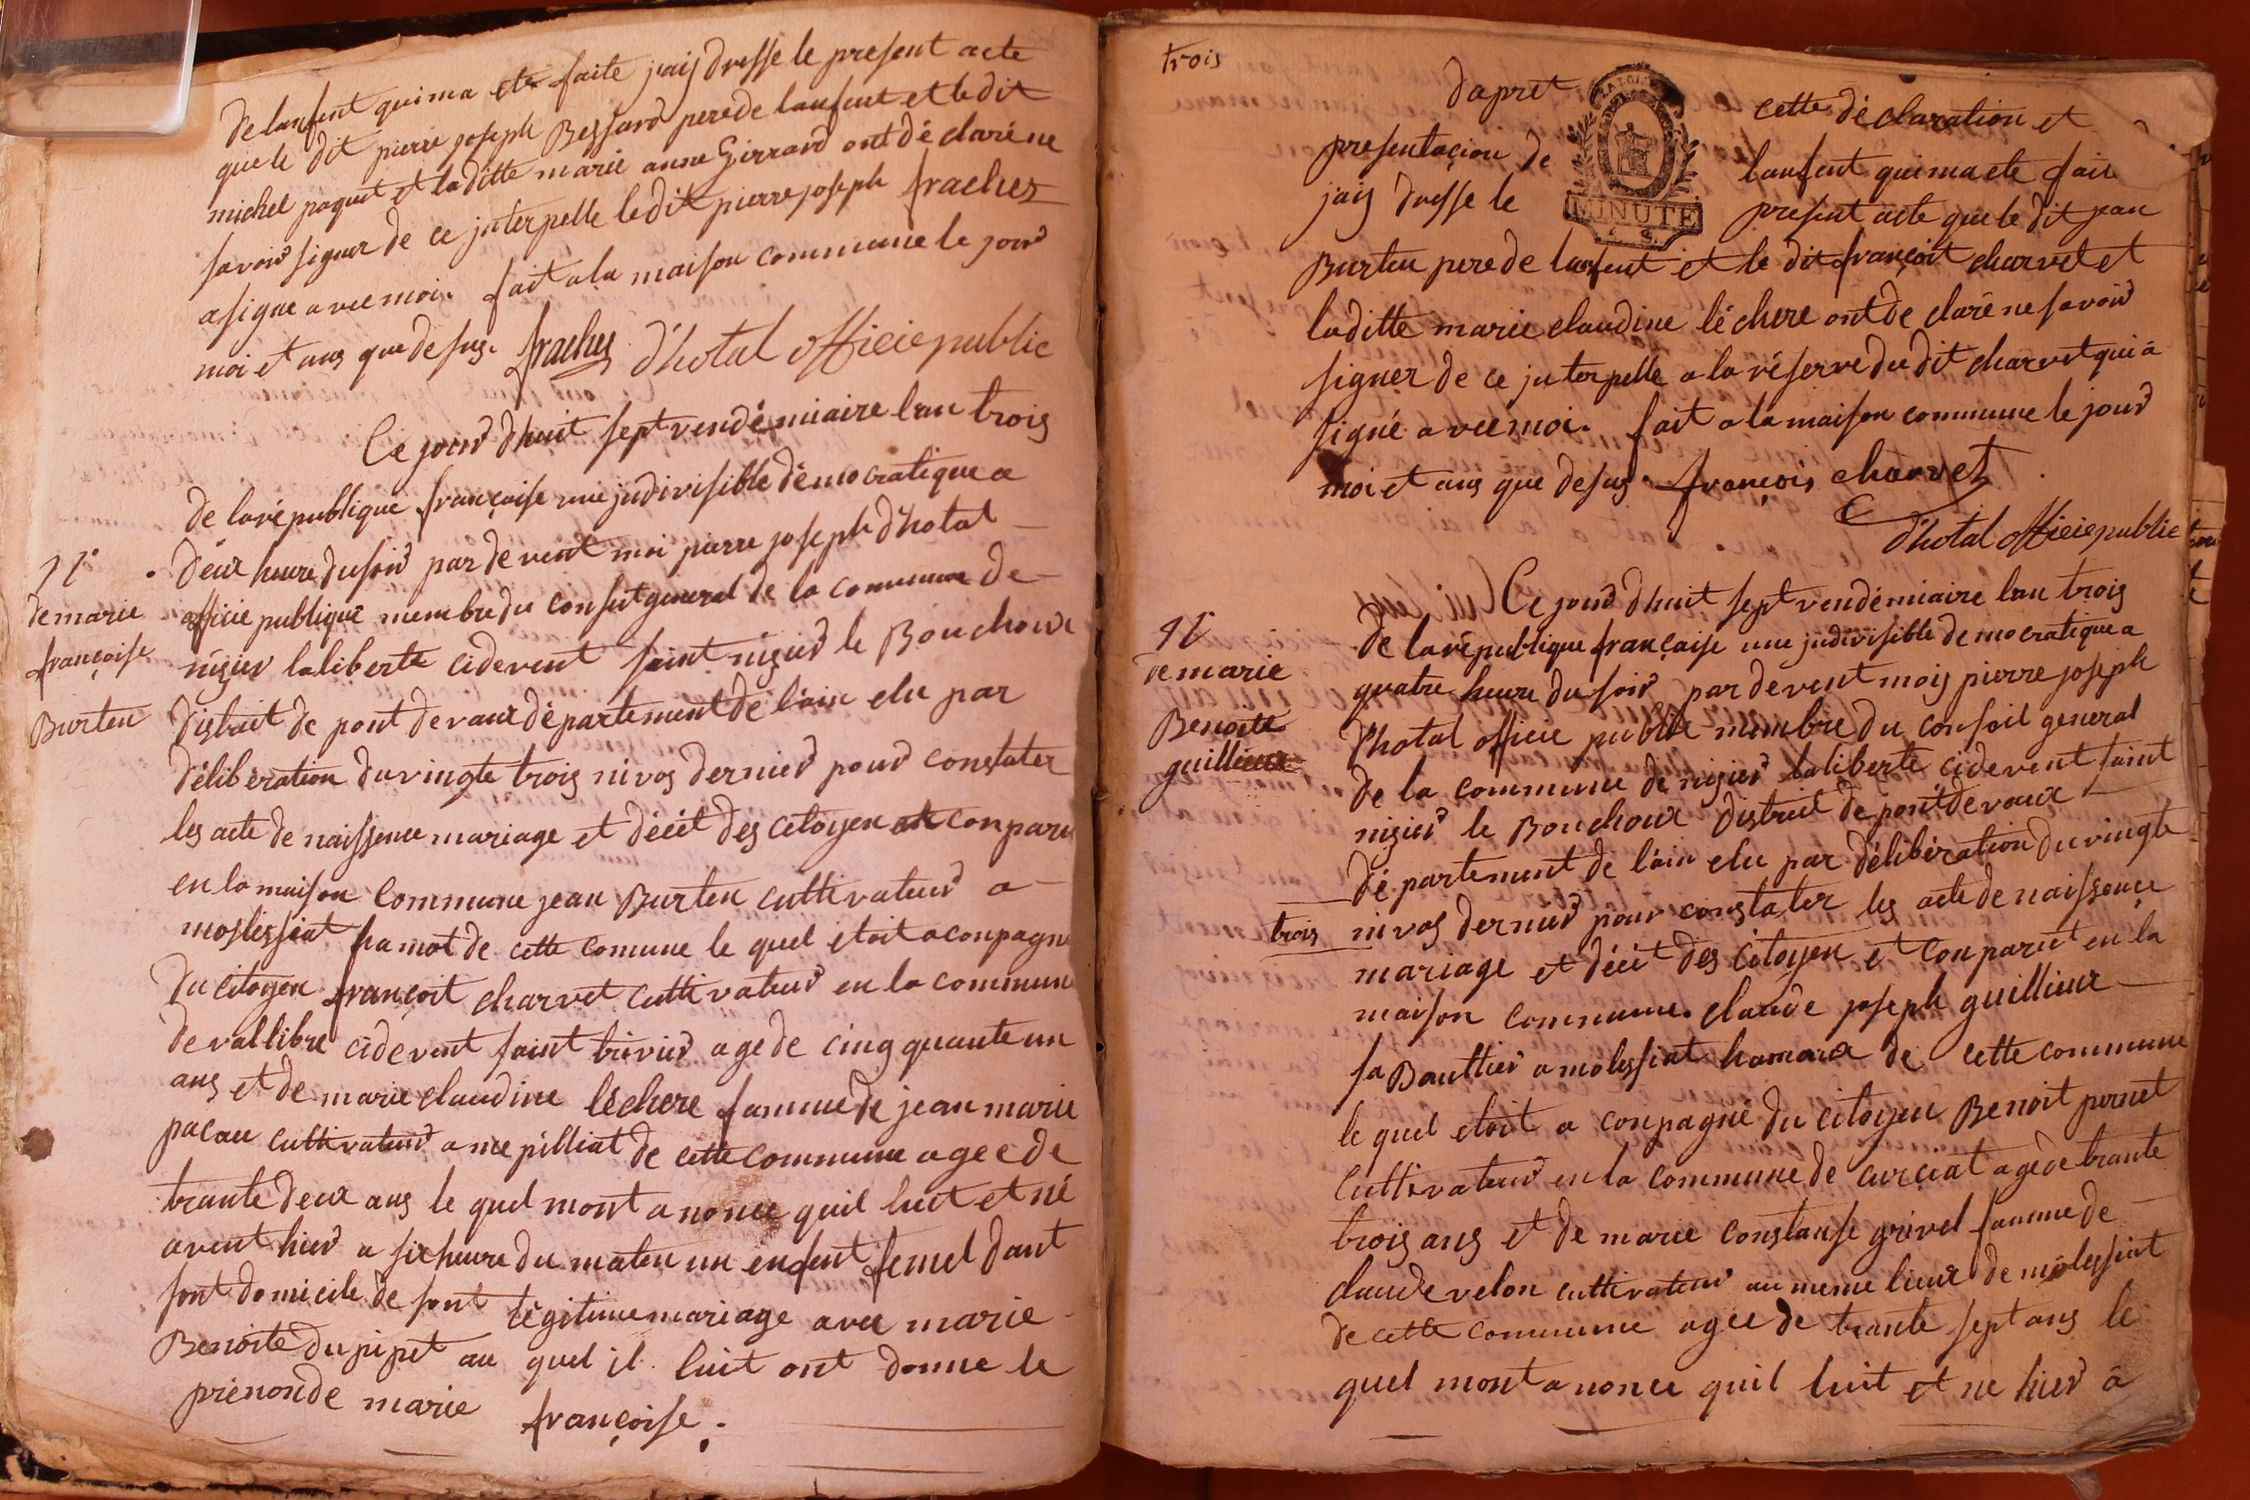 de lanfent qui ma ete faite jaij dresse le present acte
que le dit pierre joseph Bessard pere de lanfent et le dit
michel paquit et la ditte marie anne Girrard ont déclaré ne
savoir signer de ce jnterpelle le dit pierre joseph frachez
a signe avec moi. fait a la maison commune le jour
moi et ans que desus. frachez d'hotal officie public
Ce jour d'huit sept vendémiaire lan trois
de la république françaisse une jndivisible démocratique a
deux heure du soir par devent moi pierre joseph d'hotal
officie publique membre du conseit general de la commune de
nizier laliberte cidevent saint nizier le Bouchoux
district de pont de vaux département de lain elu par
délibération du vingte trois nivos dernier pour constater
les acte de naissence mariage et décét des citoyen et conparu
en la maison commune jean Burten cultivateur a
moslessiat hamot de cette comune le quel etoit aconpagne
du citoyen françoit charvet cultivateur en la commune
de val libre cidevent saint trivier age de cinq quante un
ans et de marie claudine léchere famme de jean marie
pacau cultivateur a mepilliat de cette commune agee de
trante deux ans le quel mont anonce quil luit et né
avent hier a six heure du maten un enfent femel dant
sont domicile de sont légitime mariage avec marie
Benoite du pipet au quel il luit ont donne le
prénon de marie françoise.
de marie
françoise
Burten
trois
MINUTE
dapret cette déclaration et
presentaçion de lanfent qui ma ete fait
jaij dresse le present acte que le dit jean
Burten pere de lanfent et le dit françoit charvet et
la ditte marie claudine léchere ont de claré ne savoir
signer de ce jnterpelle a la réserve du dit charvet qui a
signé avec moi. fait a la maison commune le jour
moi et ans que desus. françois charvet
d'hotal officie public
Ce jour d'huit sept vendémiaire lan trois
de la république françaisse une jndivisible democratique a
quatre heure du soir par devent mois pierre joseph
d'hotal officie public membre du conseil general
de la commune de nizier laliberté cidevent saint
nizier le Bouchoux district de pont de vaux
département de lain elu par délibération du vingte
trois nivos dernier pour constater les acte de naissence
mariage et décét des citoyen et conparut en la
maison commune. claude joseph guillieux
sa Bauttier a molessiat hamaux de cette commune
le quel etoit a conpagné du citoyen Benoit pernet
cultivateur en la commune de curciat agé de trante
trois ans et de marie constanse grivel famme de
claude velon cultivateur au meme lieux de molessiat
de cette commune agee de trante sept ans le
quel mont a nonce quil luit et ne hier a
de marie
Benoitte
guillieux